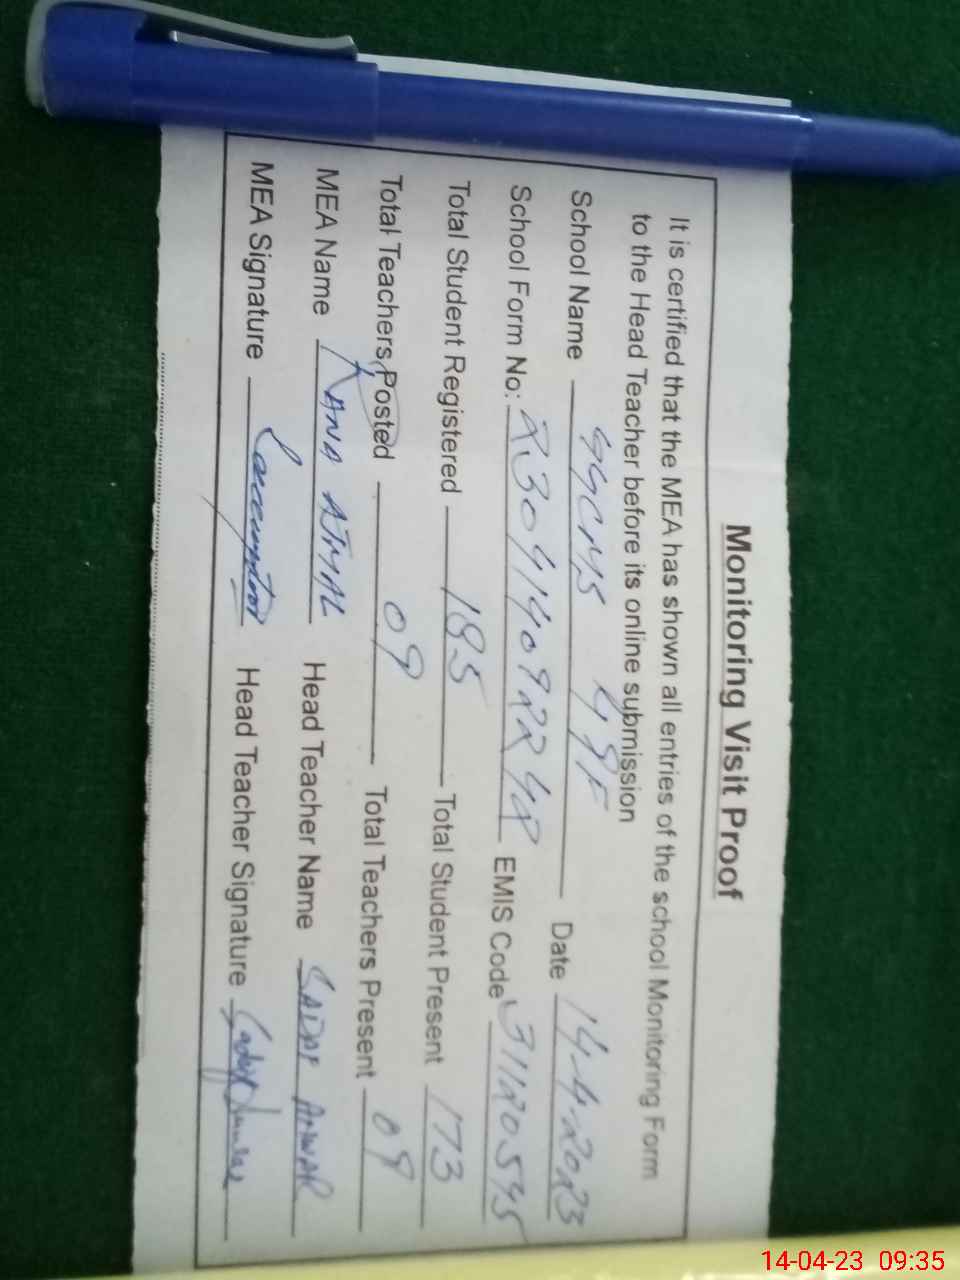 Monitoring Visit Proof
It is certified that the MEA has shown all entries of the school Monitoring Form
to the Head Teacher before its online submission
School Name GGCMS 49F Date 14-4-2023
School Form No: EMIS Code 31120545
Total Student Registered 185 Total Student Present 173
Total Teachers Posted 09 Total Teachers Present 09
MEA Name RANA AJMAL Head Teacher Name SADAF ANWAR
MEA Signature Head Teacher Signature
14-04-23 09:35